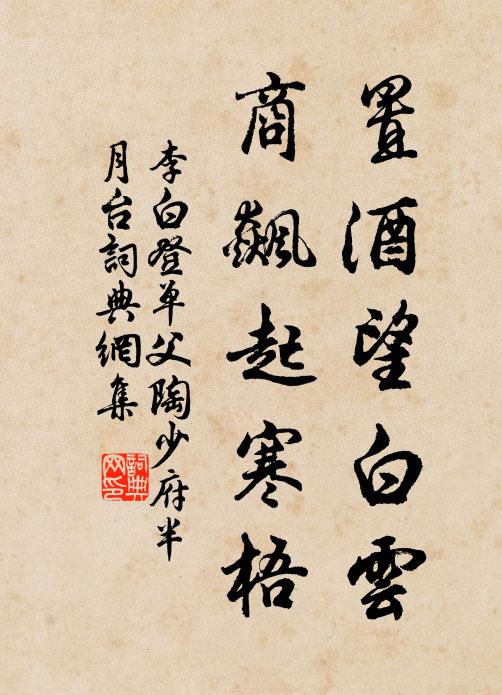 置酒望白雲
商飆起寒梧
李白登單父陶少府半
月台詞典網集
詞典網印